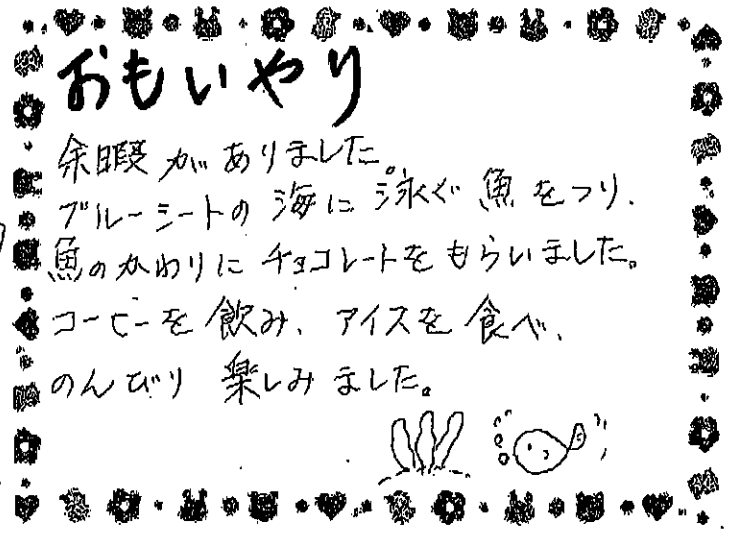 おもいやり
余暇がありました。
ブルーシートの海に泳ぐ魚をつり、
魚のかわりにチョコレートをもらいました。
コーヒーを飲み、アイスを食べ、
のんびり楽しみました。